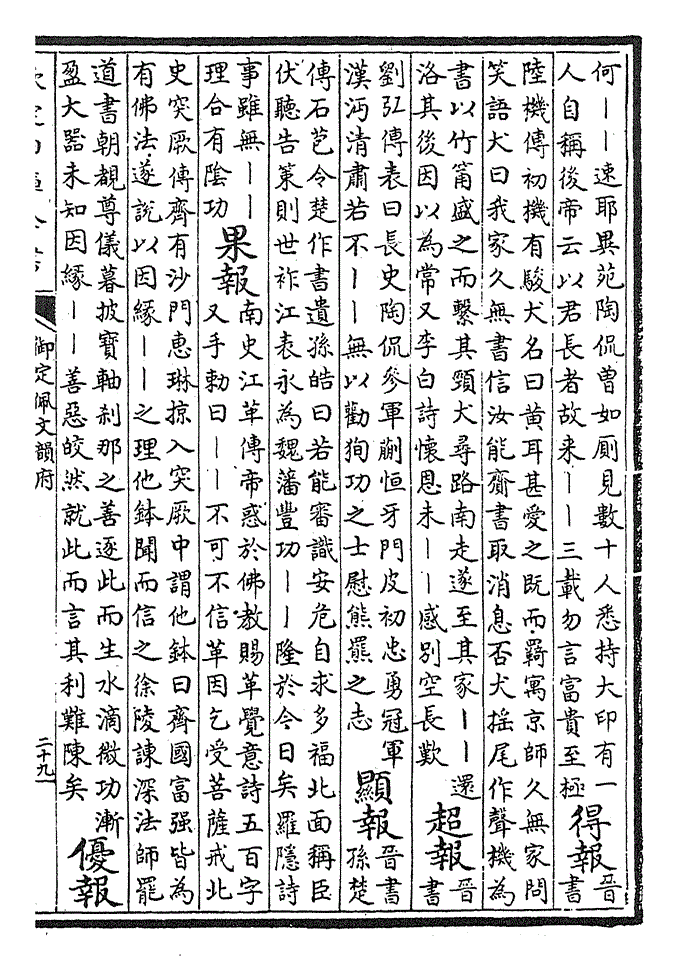 何——速耶異苑陶侃曾如厠見數十人悉持大印有一
人自稱後帝云以君長者故来——三載勿言富貴至極
得報
晉
書
陸機傳初機有駿犬名曰黃耳甚愛之既而羇寓京師久無家問
笑語犬曰我家久無書信汝能齎書取消息否犬摇尾作聲機為
書以竹筩盛之而繫其頸犬尋路南走遂至其家——還
洛其後因以為常又李白詩懷恩未——感別空長歎
超報
晉
書
劉弘傳表曰長史陶侃參軍蒯恒牙門皮初忠勇冠軍
漢沔清肅若不——無以勸狥功之士慰熊羆之志
顯報
晉書
孫楚
傳石苞令楚作書遺孫皓曰若能審識安危自求多福北面稱臣
伏聽告策則世祚江表永為魏藩豐功——隆於今日矣羅隱詩
事雖無——
理合有陰功
果報
南史江革傳帝惑於佛教賜革覺意詩五百字
又手勅曰——不可不信革因乞受菩薩戒北
史突厥傳齊有沙門惠琳掠入突厥中謂他鉢曰齊國富强皆為
有佛法遂說以因緣——之理他鉢聞而信之徐陵諫深法師罷
道書朝覩尊儀暮披寶軸刹那之善逐此而生水滴微功漸
盈大器未知因緣——善惡皎然就此而言其利難陳矣
優報
御定佩文韻府
二十九